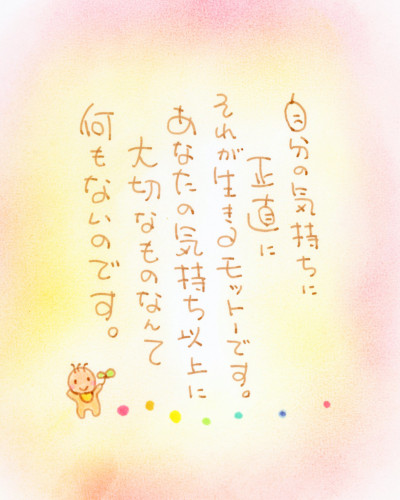 自分の気持ちに
正直に
それが生きるモットーです。
あなたの気持ち以上に
大切なものなんて
何もないのです。